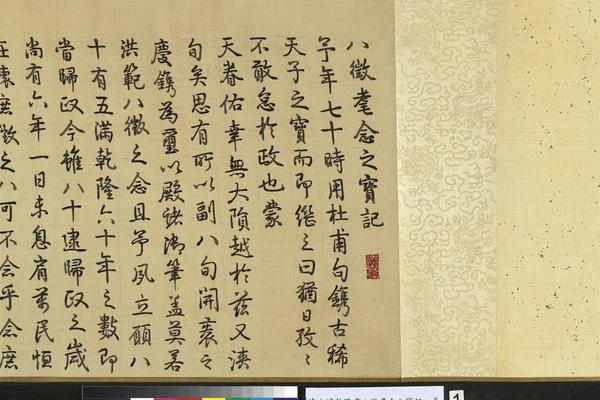 八徵耄念之寶記
予年七十時用杜甫句鐫古稀
天子之寶而即繼之曰猶日孜〻
不敢怠於政也蒙
天眷佑幸無大隕越於茲又浹
旬矣思有所以副八旬開袠之
慶鐫為璽以殿諸御筆蓋莫若
洪範八徵之念且予夙立願八
十有五滿乾隆六十年之數即
當歸政今雖八十逮歸政之歲
尚有六年一日未息肩萬民恒
在懷庶徵之八可不念乎念庶
1